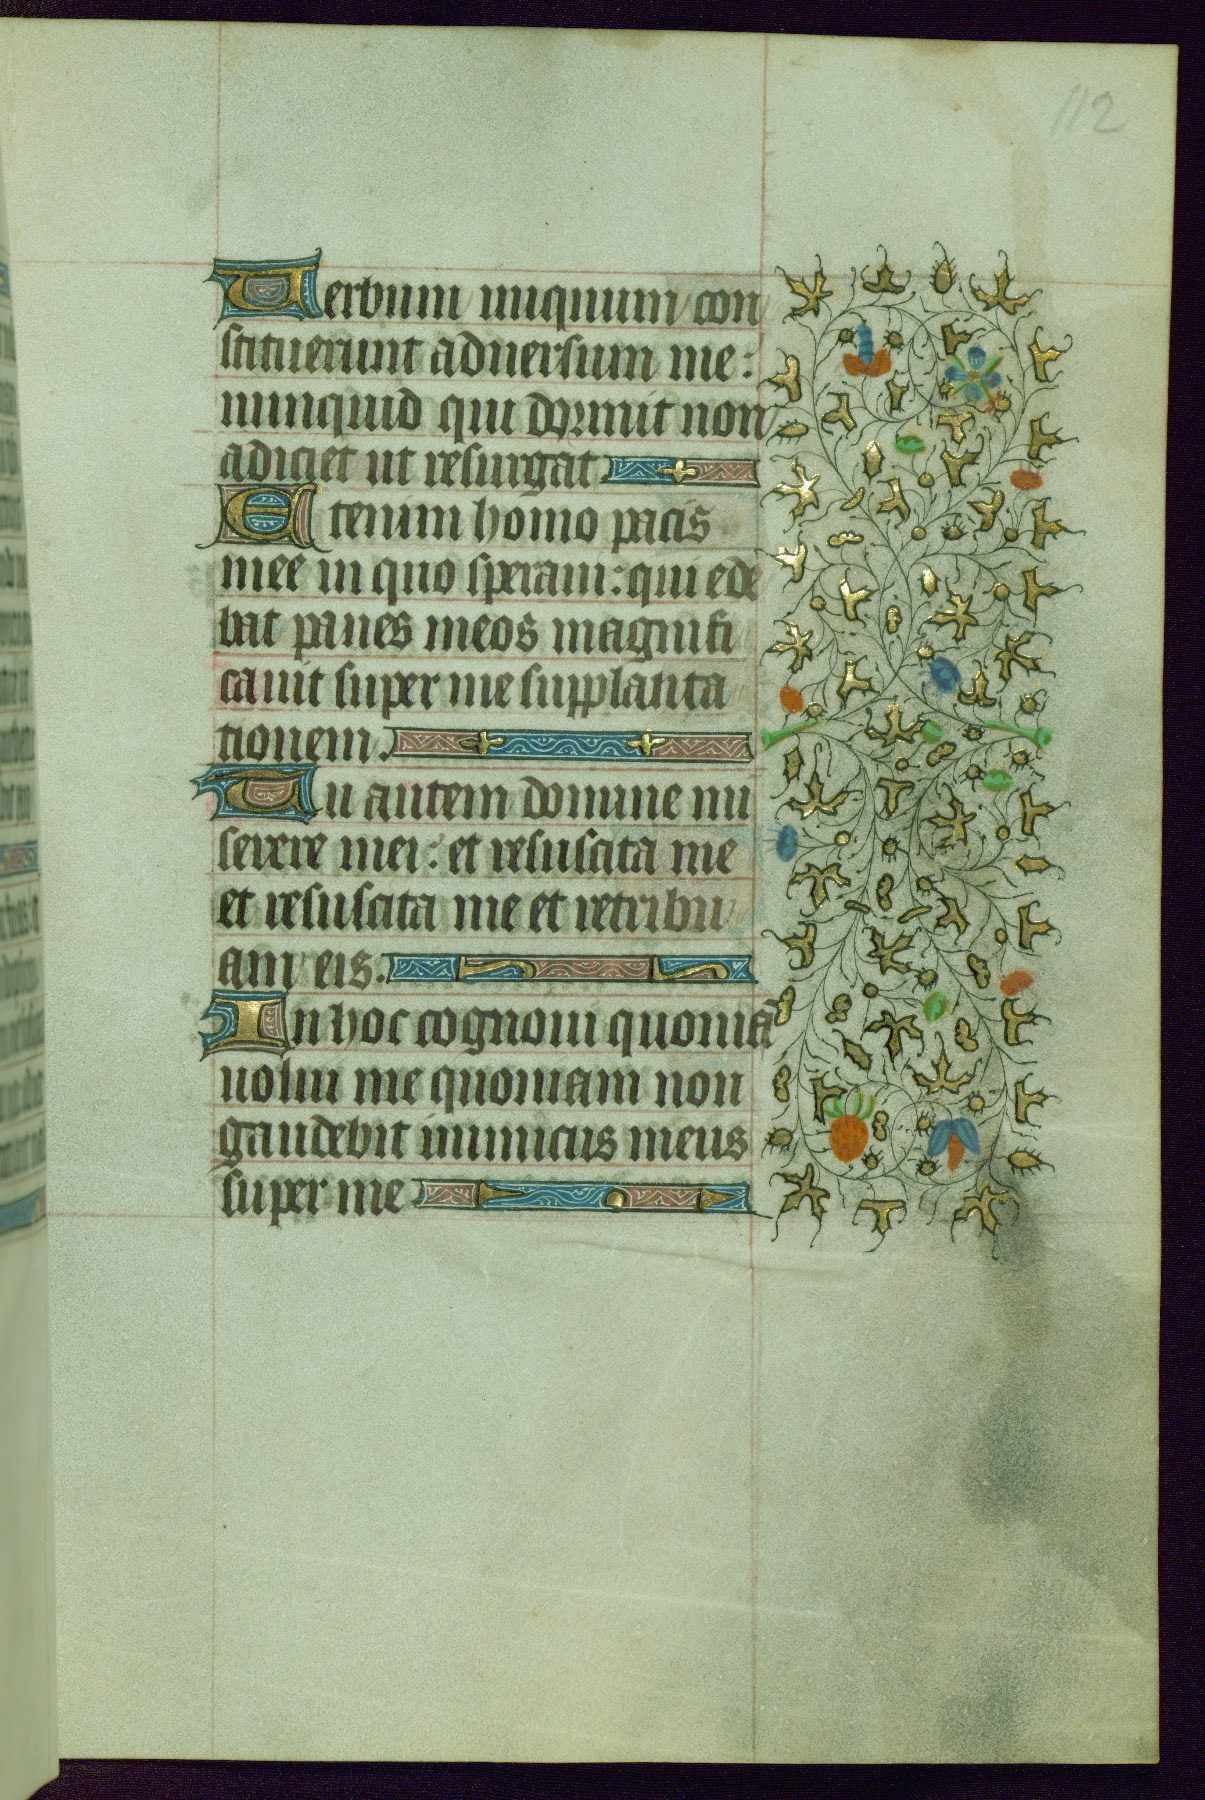 112
Verbum iniquum con
stituerunt aduersum me:
nunquid qui dormit non
adiciet ut resurgat
Etenim homo pacis
mee in quo speraui: qui ede
bat panes meos magnifi
cauit super me supplanta
tionem.
Tu autem domine mi
serere mei: et resuscita me
et resuscita me et retribu
am eis.
In hoc cognoui quoniã
uoluu me quoniam non
gaudebit inimicus meus
super me